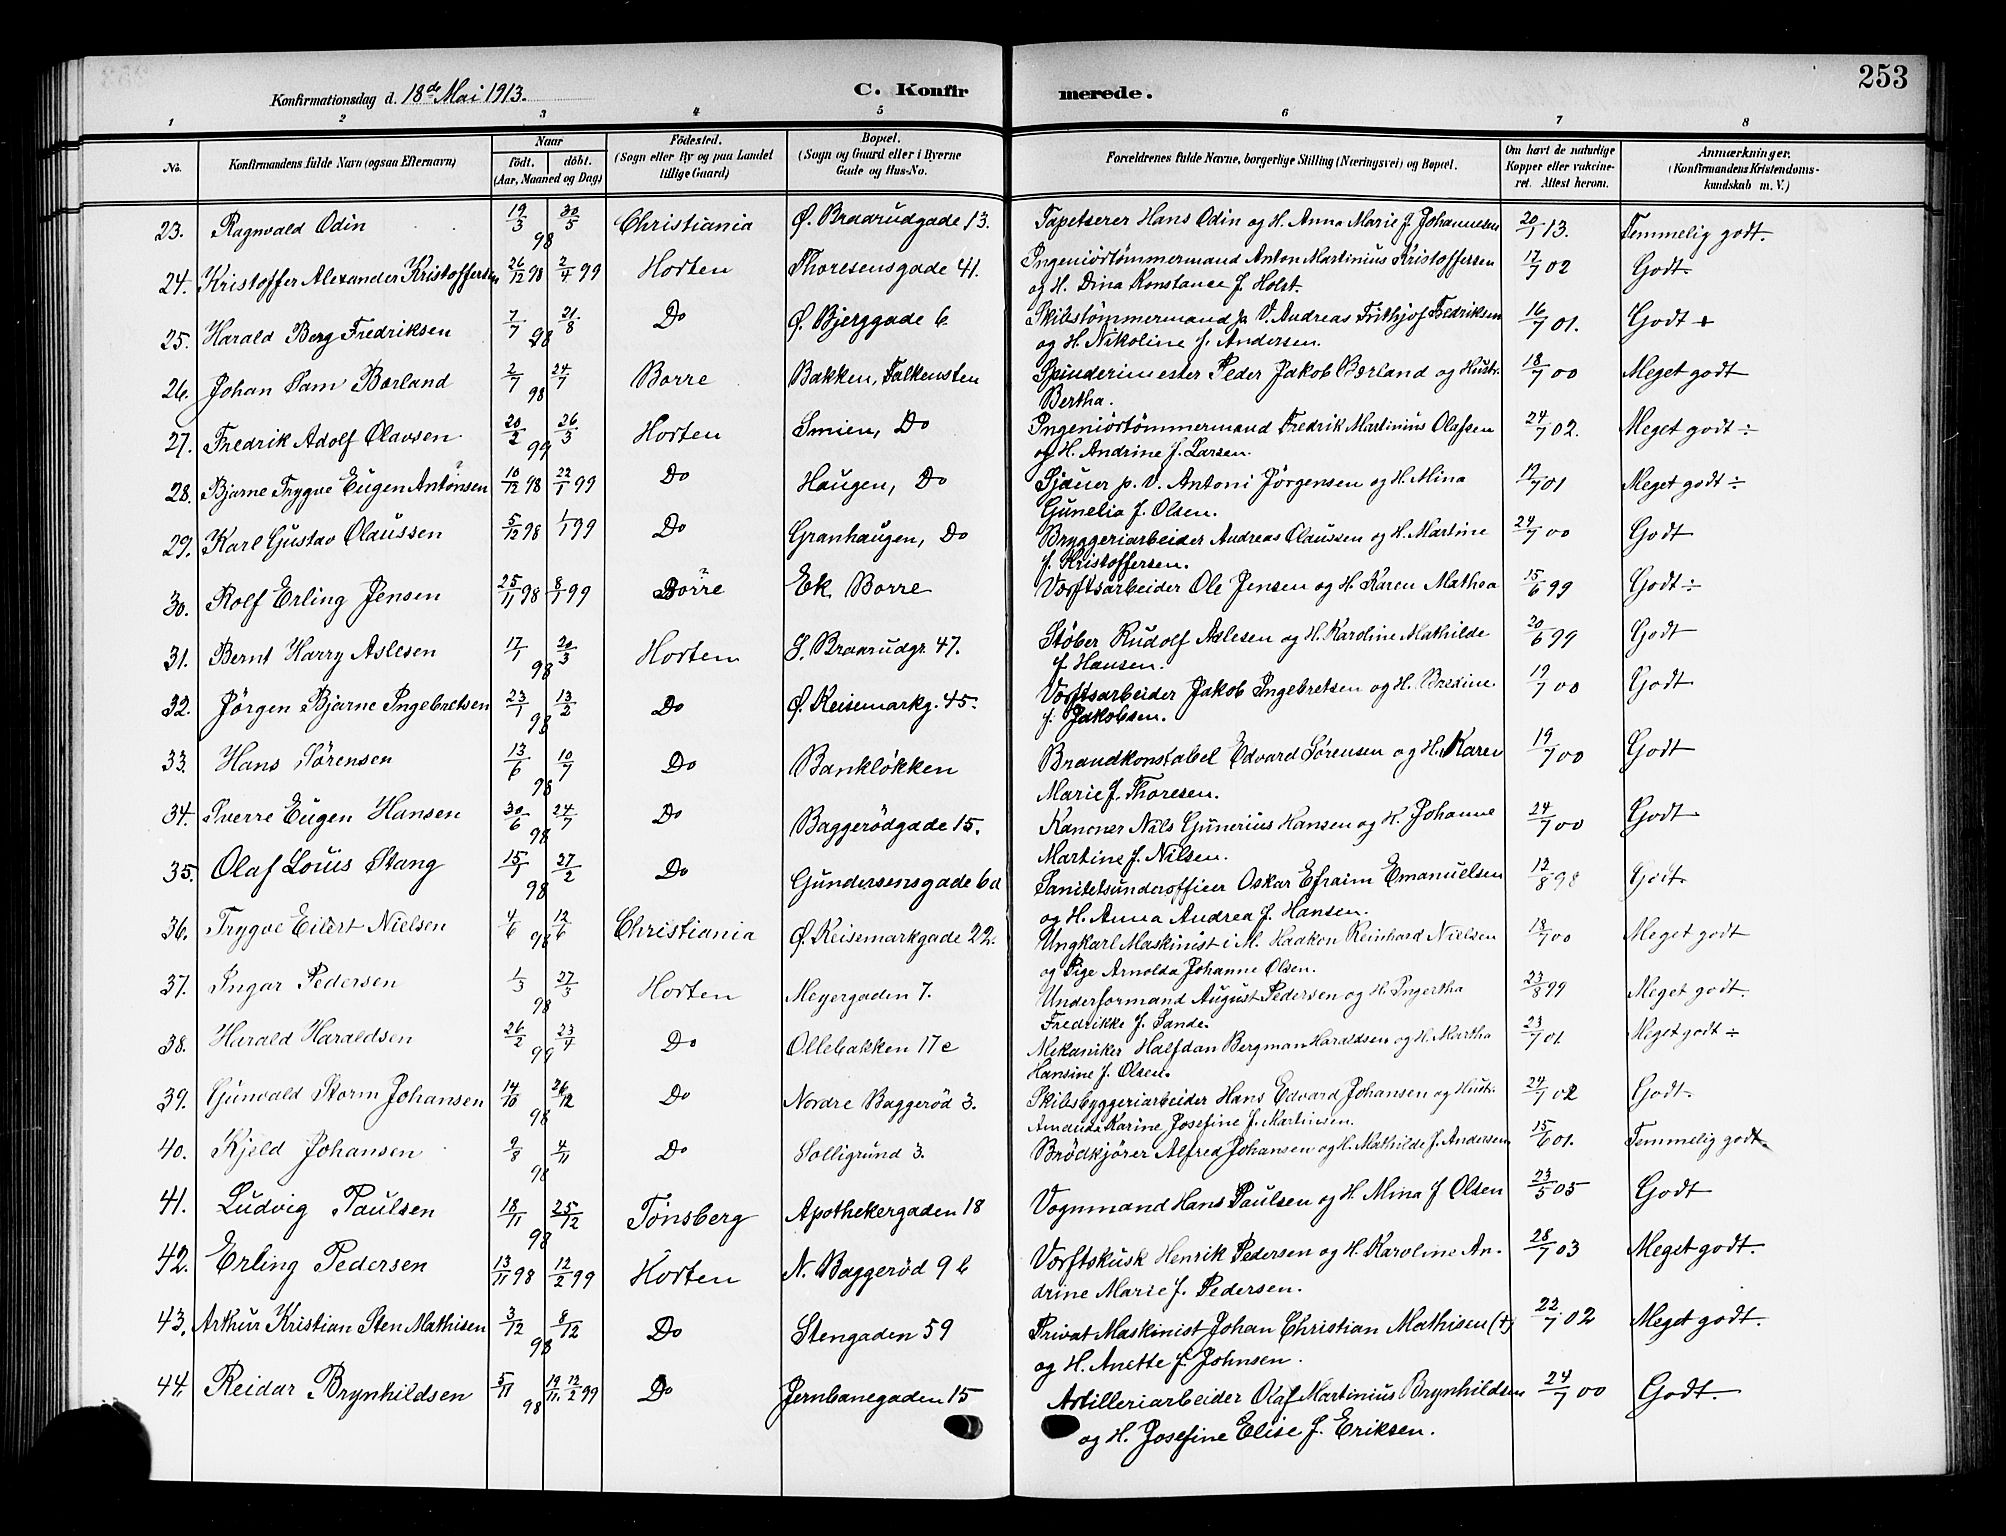 253
Konfirmationsdag d. 18de Mai 1913.
C. Konfirmerede.
1 2 3 4 5 6 7 8
No. Konfirmandens fulde Navn (ogsaa Efternavn) Naar födt. döbt. (Aar, Maaned og Dag) Födested. (Sogn eller By og paa Landet tillige Gaard) Bopæl. (Sogn og Gaard eller i Byerne Gade og Hus-No. Forældrenes fulde Navne, borgerlige Stilling (Næringsvei) og Bopæl. Om havt de naturlige Kopper eller vakcineret. Attest herom. Anmærkninger. (Konfirmandens Kristendomskundskab m. V.)
23. Ragnvald Odin 19/3 30/5 98 Christiania Ø. Braarudgade 13. Tapetserer Hans Odin og H. Anna Marie f. Johannesen 20/1 13. Temmelig godt.
24. Kristoffer Alexander Kristoffersen 26/12 98 2/4 99 Horten Thoresensgade 41. Ingeniörtömmermand Anton Martinius Kristoffersen 17/7 02 Godt
og H. Dina Konstance f. Holst.
25. Harald Berg Fredriksen 7/7 21/8 98 Do Ø. Bjerggade 6 Skibstömmermand p. V. Andreas Frithjof Fedriksen 16/7 01. Godt +
og H. Nikoline f. Andersen.
26. Johan Sam Borland 2/7 24/7 98 Borre Bakken, Falkensten Spinderimester Peder Jakob Børland og Hustr. 18/7 00 Meget godt
Bertha.
27. Fredrik Adolf Olavsen 20/2 26/3 99 Horten Smien, Do Ingeniörtömmermand Fredrik Martinius Olafsen 24/7 02. Meget godt ÷
og H. Andrine f. Larsen.
28. Bjarne Trygve Eugen Antonsen 10/12 98 22/1 99 Do Haugen, Do Sjauer p. V. Antoni Jörgensen og H. Mina 17/7 01 Meget godt ÷
Gunelia f. Olsen.
29. Karl Gustav Olaussen 5/12 98 1/1 99 Do Granhaugen, Do Bryggeriarbeider Andreas Olaussen og H. Martine 24/7 00 Godt
f. Kristoffersen.
30. Rolf Erling Jensen 25/11 98 8/1 99 Borre Ek Borre Værftsarbeider Ole Jensen og H. Karen Mathea 15/6 99 Godt ÷
31. Bernt Harry Aslesen 17/1 20/3 98 Horten S. Braarudgr. 47. Stöber Rudolf Aslesen og H. Karoline Mathilde 20/6 99 Godt
f Hansen.
32. Jörgen Bjarne Ingebretsen 23/1 13/2 98 Do Ø. Keisemarkg. 45. Værftsarbeider Jakob Ingebretsen og H. Bredine 19/7 00 Godt
f. Jakobsen.
33. Hans Sörensen 13/6 10/7 98 Do Banklökken Brandkonstabel Edvard Sörensen og H. Karen 19/7 00 Godt
Marie f. Thoresen.
34. Sverre Eugen Hansen 30/6 24/7 98 Do Baggerödgade 15. Kanoner Nils Gunerius Hansen og H. Johanne 24/7 00 Godt
Martine f. Nilsen.
35. Olaf Louis Stang 15/1 27/2 98 Do Gundersensgade 6d Sanitetsunderofficer Oskar Efraim Emanuelsen 12/8 98 Godt.
og H. Anna Andrea f. Hansen.
36. Trygve Eilert Nielsen 4/6 12/6 98 Christiania Ø. Keisemarkgade 22. Ungkarl Maskinist i M. Haakon Reinhard Nielsen 18/7 00 Meget godt
og Pige Arnolda Johanne Olsen.
37. Ingar Pedersen 1/3 27/3 98 Horten Meyergaden 7. Underformand August Pedersen og H. Ingertha 23/8 99 Meget godt.
Fredrikke f. Sande.
38. Harald Haraldsen 26/2 23/4 99 Do Ollebakken 17c Mekaniker Halfdan Bergman Haraldsen og H. Martha 23/7 01. Meget godt ÷
Hansine f. Olsen.
39. Gunvald Storm Johansen 14/10 26/12 98 Do Nordre Baggeröd 3. Skibsbyggeriarbeider Hans Edvard Johansen og Hustr. 24/7 02 Godt.
Amanda Karine Josefine f. Martinsen.
40. Kjeld Johansen 9/8 4/11 98 Do Solligrund 3. Brödkjörer Alfred Johansen og H. Mathilde f. Andersen 15/6 01. Temmelig godt
41. Ludvig Paulsen 18/11 25/12 98 Tönsberg Apothekergaden 18 Vognmand Hans Paulsen og H. Mina f Olsen 23/5 05 Godt
42. Erling Pedersen 13/11 98 12/2 99 Horten N. Baggeröd 9 b Værftskusk Henrik Pedersen og H. Karoline An- 28/7 03 Meget godt.
drine Marie f. Pedersen.
43. Arthur Kristian Sten Mathisen 3/12 8/12 98 Do Stengaden 59 Privat Maskinist Johan Christian Mathisen (+) 22/7 02 Meget godt.
og H. Anette f. Johnsen.
44. Reidar Brynhildsen 5/11 98 19/11 12/2 99 Do Jernbanegaden 15 Artilleriarbeider Olaf Martinius Brynhildsen 24/7 00 Godt.
og H. Josefine Elise f. Eriksen.